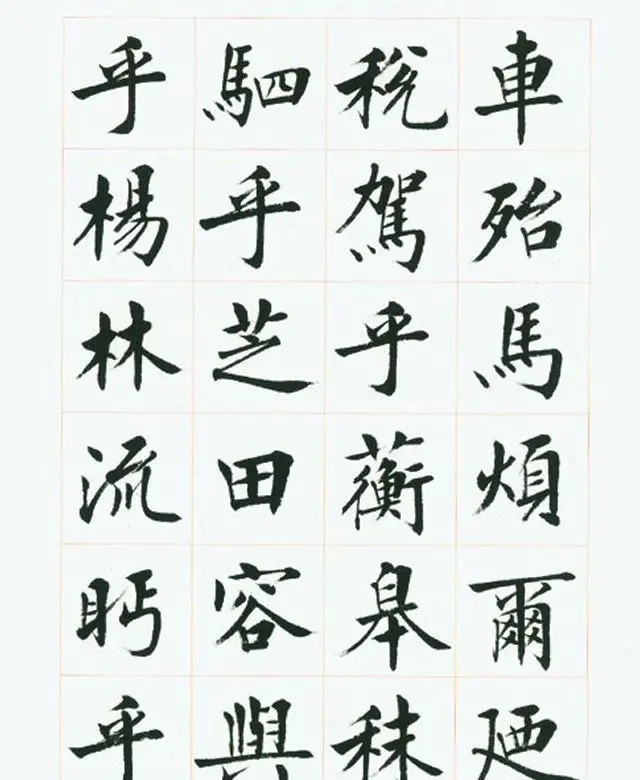 車殆馬煩爾廼
稅駕乎蘅皋秣
駟乎芝田容與
乎楊林流眄乎